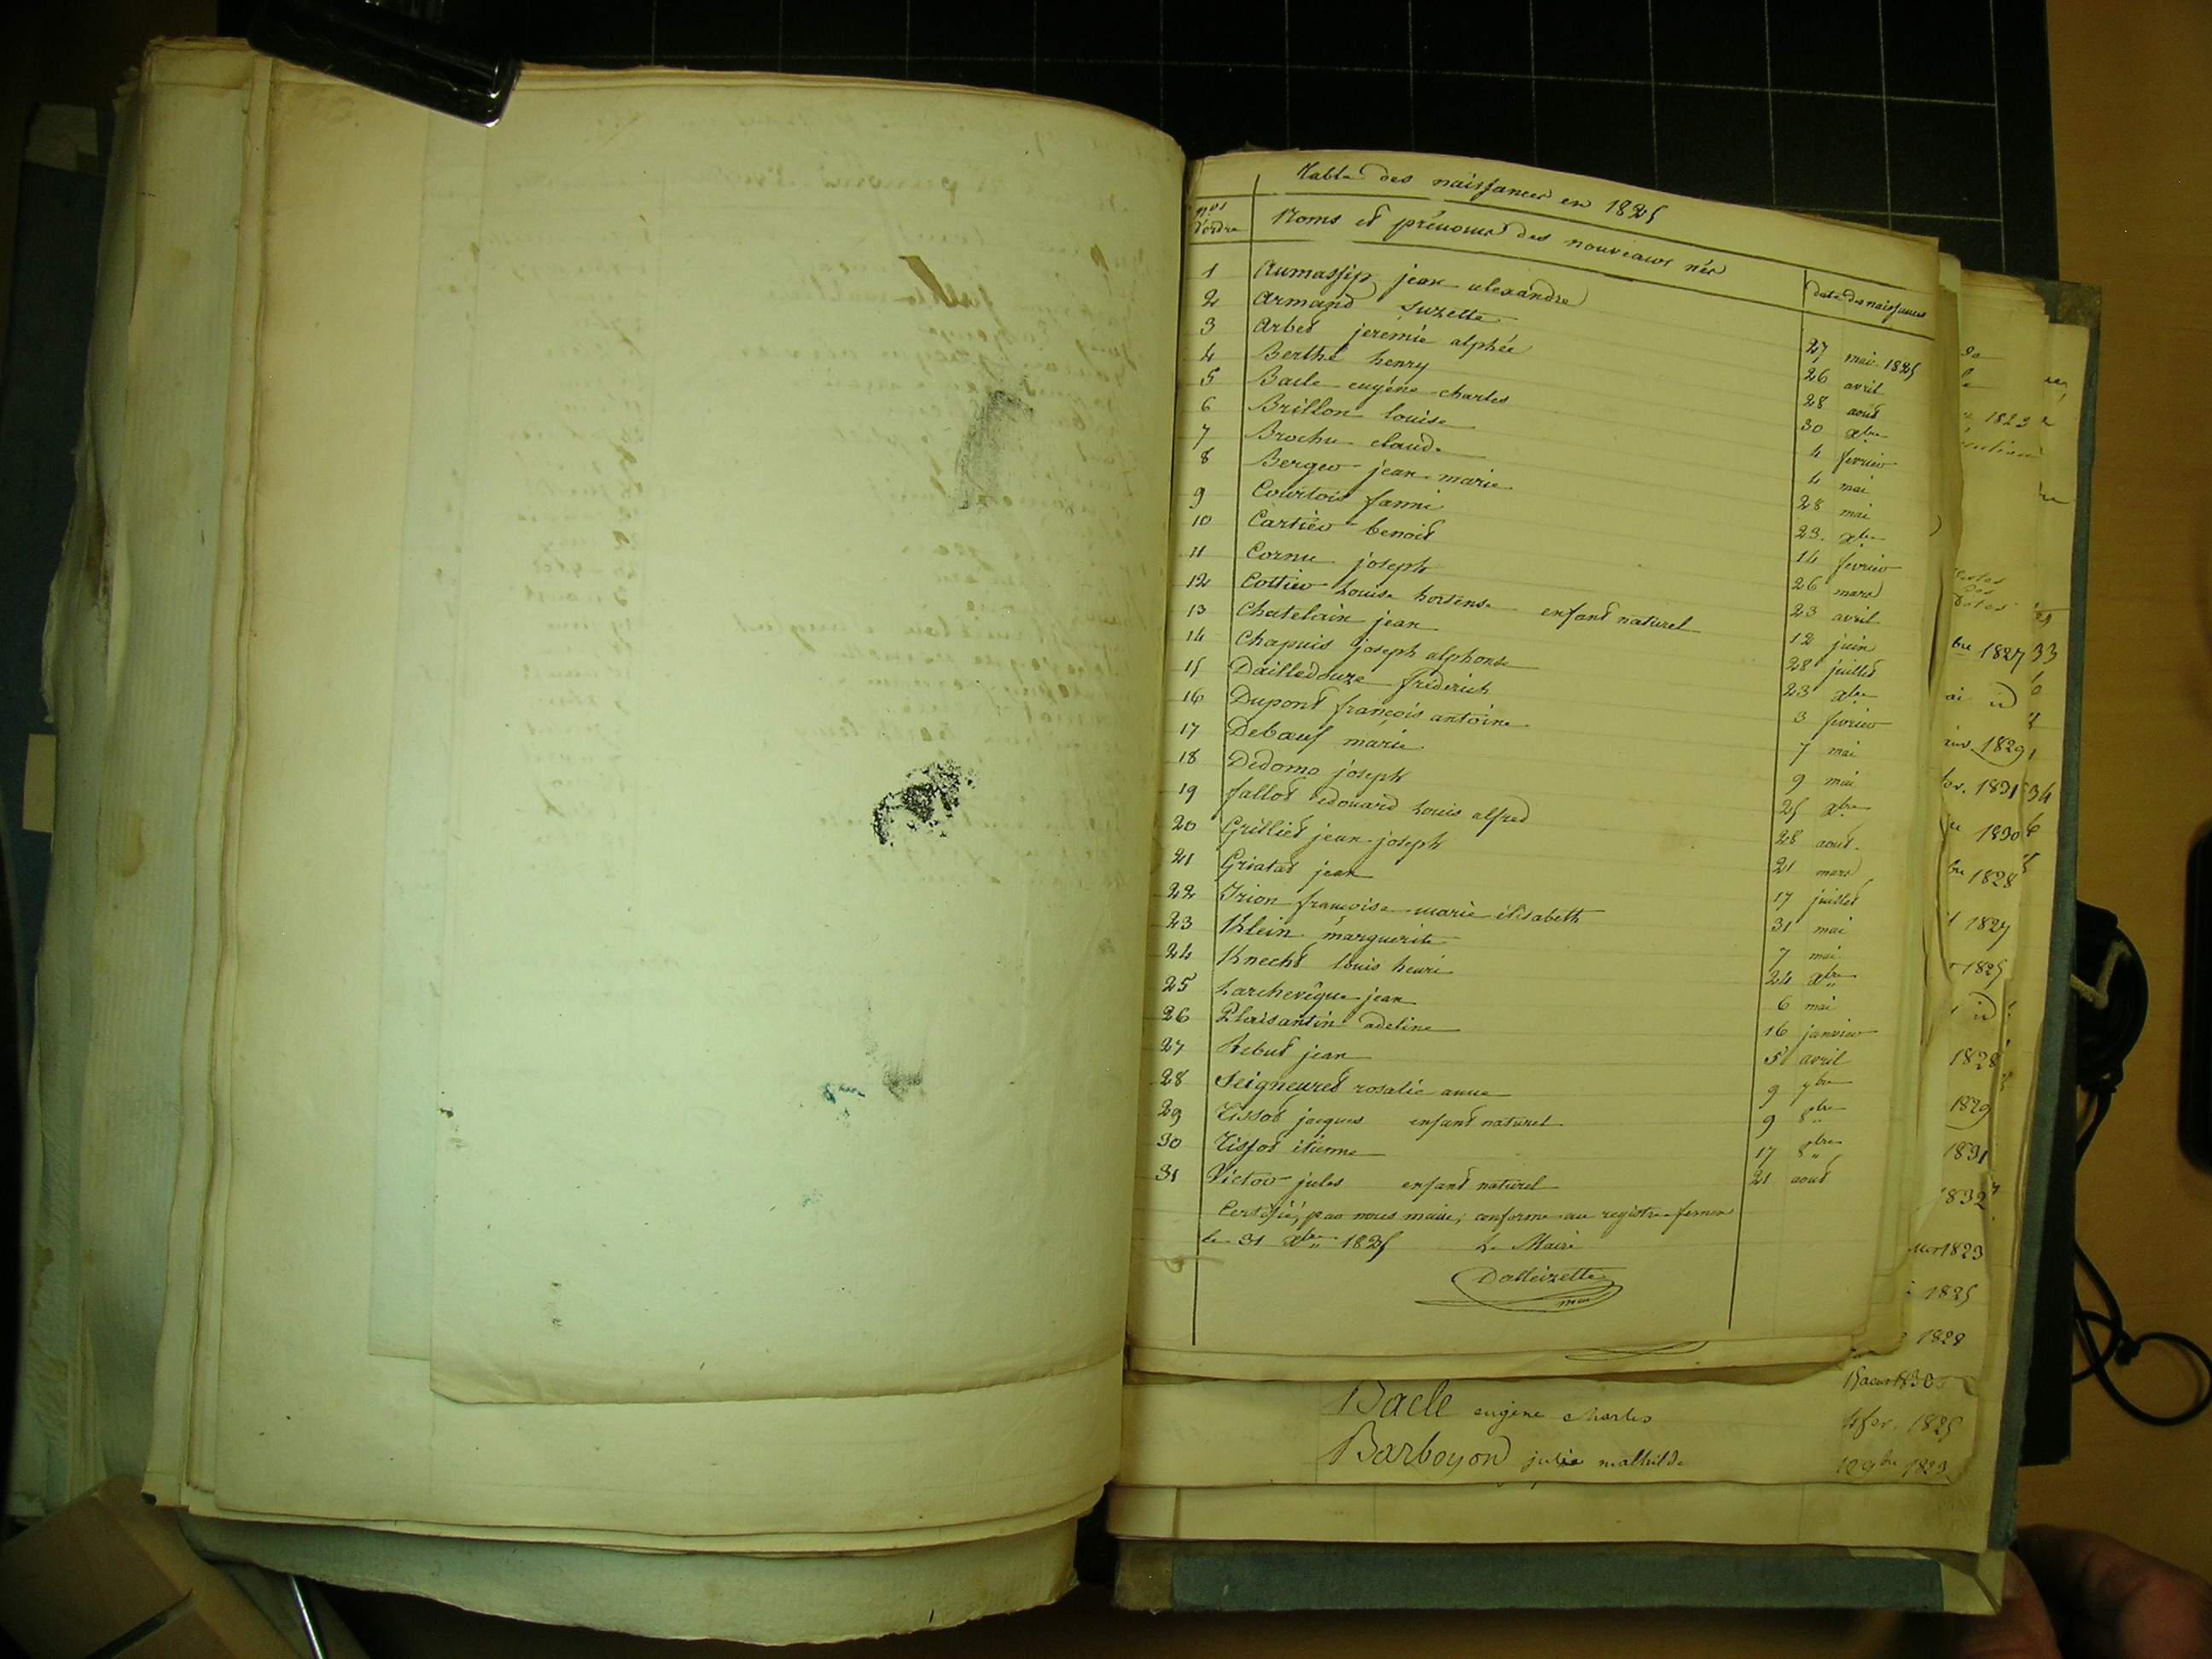 Table des naissances en 1825
nos d'ordre Noms et prénoms des nouveaux nés date de naissances
1 Aumassip jean alexandre 27 mai 1825
2 Armand Suzette 26 avril
3 Arbet jerémie alphée 28 aout
4 Berthe henry 30 xbre
5 Bacle eugéne charles 4 fevrier
6 Brillon louise 4 mai
7 Brochu claude 28 mai
8 Berger jean marie 23 xbre
9 Courtois fanni 14 fevrier
10 Cartier benoit 26 mars
11 Cornu joseph 23 avril
12 Cottier Louise hortense enfant naturel 12 juin
13 Chatelain jean 28 juillet
14 Chapuis joseph alphonse 23 xbre
15 Dailledouze friderich 3 fevrier
16 Dupont françois antoine 7 mai
17 Debœuf marie 9 mai
18 Dedomo joseph 25 xbre
19 fallot edouard Louis alfred 28 aout
20 Grilliet jean joseph 21 mars
21 Griatat jean 17 juillet
22 Irion francoise marie élisabeth 31 mai
23 Klein marguerite 7 mai
24 Knecht louis henri 24 xbre
25 Larchevêque jean 6 mai
26 Plaisantin adeline 16 janvier
27 Rebut jean 5 avril
28 Seigneuret rosalie anne 9 7bre
29 Tissot jacques enfant naturel 9 8bre
30 Tissot étienne 17 8bre
31 Victor jules enfant naturel 21 aout
Certifié, par nous maire, conforme au registre fermé
le 31 xbre 1825 Le Maire
Dalleizette
maire
Bacle eugène charles 4 fev. 1825
Barboyon julie mathilde
1827 33
1829
1831 34
1830
1828
1827
1825
1828
1829
1831
1832
1823
1825
1828